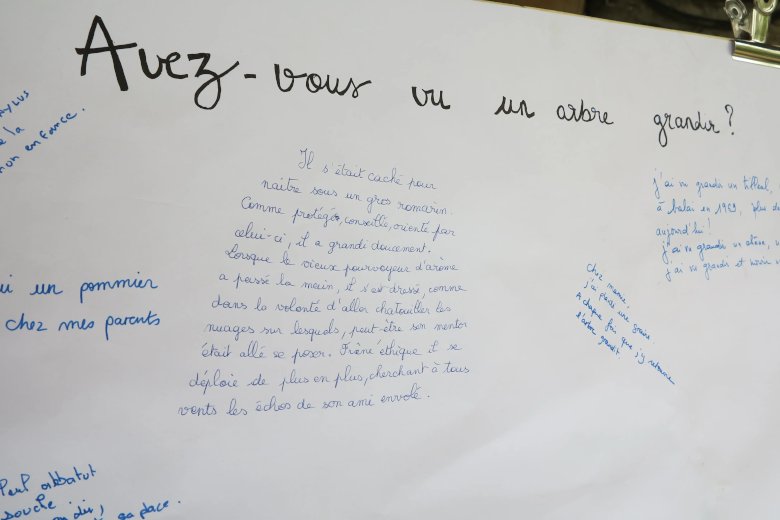 Avez-vous vu un arbre grandir?
Il s'était caché pour
naître sous un gros romarin.
Comme protégé, conseillé, orienté par
celui-ci, il a grandi doucement.
Lorsque le vieux pourvoyeur d'arôme
a passé la main, il s'est dressé, comme
dans la volonté d'aller chatouiller les
nuages sur lesquels, peut-être son mentor
était allé se poser. Frêne éthique il se
déploie de plus en plus, cherchant à tous
vents les échos de son ami envolé.
la
mon enfance.
un pommier
chez mes parents
Paul abbatut
souche
sa place.
j'ai vu grandir un tilleul,
à balai en 1989, plus
aujourd'hui!
j'ai vu grandir un
j'ai vu grandir et
Chez mamie.
j'ai planté une graine
à chaque foi que j'y retourne
l'arbre grandit.